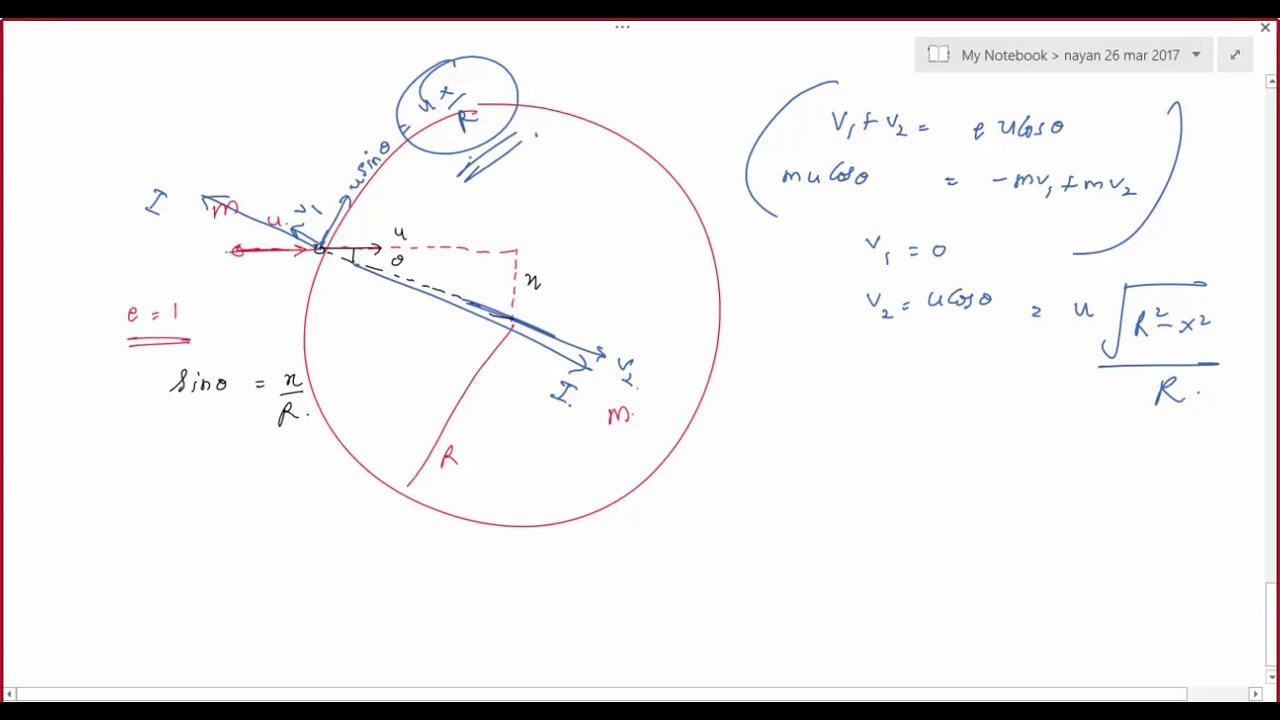 My Notebook > nayan 26 mar 2017
u x/R
= u sinθ
I
m
v1
u.
u
θ
x
e = 1
sinθ = x/R.
v2.
I.
m.
R
v1 + v2 = e u cosθ
mu cosθ = -mv1 + mv2
v1 = 0
v2 = u cosθ = u √(R² - x²) / R.